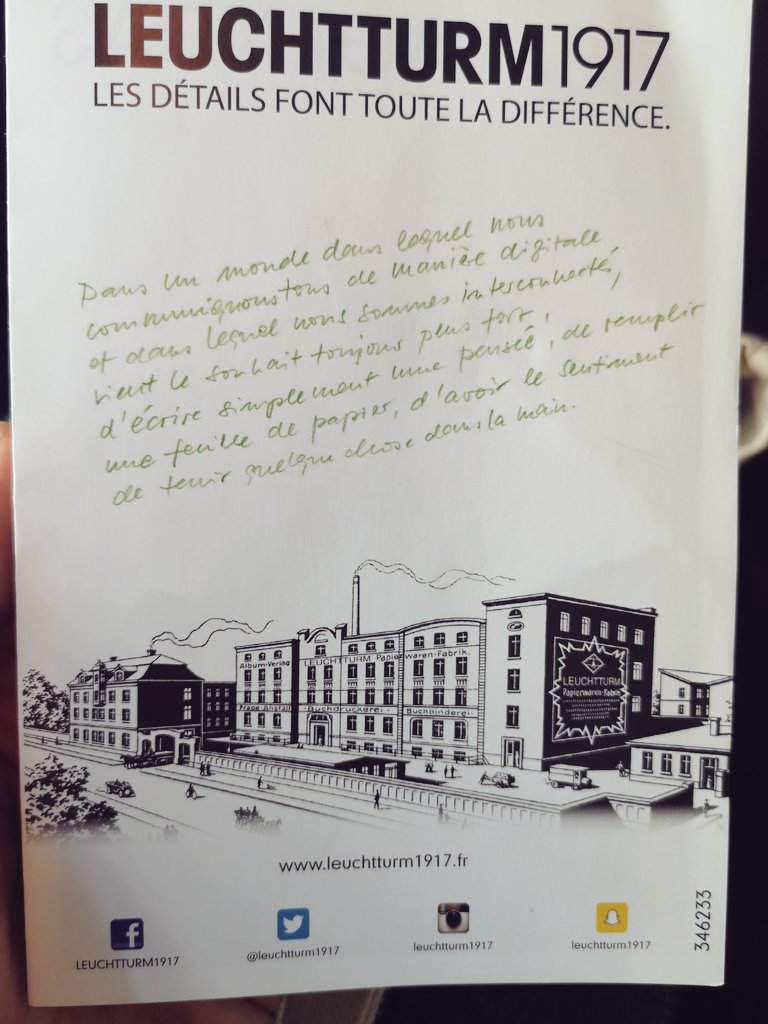 LEUCHTTURM1917
LES DÉTAILS FONT TOUTE LA DIFFÉRENCE.
Dans un monde dans lequel nous
communiquons tous de manière digitale
et dans lequel nous sommes interconnectés,
vient le souhait toujours plus fort,
d'écrire simplement une pensée, de remplir
une feuille de papier, d'avoir le sentiment
de tenir quelque chose dans la main.
Album-Verlag
LEUCHTTURM Papierwaren-Fabrik.
Präge-Anstalt
Buchdruckerei
Buchbinderei
LEUCHTTURM
Papierwaren-Fabrik
www.leuchtturm1917.fr
LEUCHTTURM1917
@leuchtturm1917
leuchtturm1917
leuchtturm1917
346233